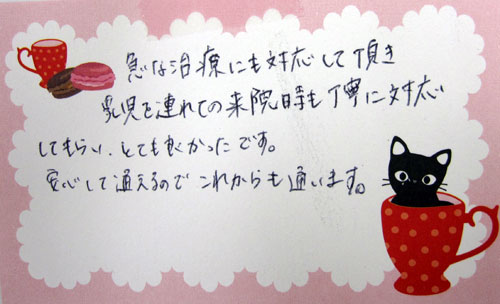 急な治療にも対応して頂き
乳児を連れての来院時も丁寧に対応
してもらい、とても良かったです。
安心して通えるのでこれからも通います。